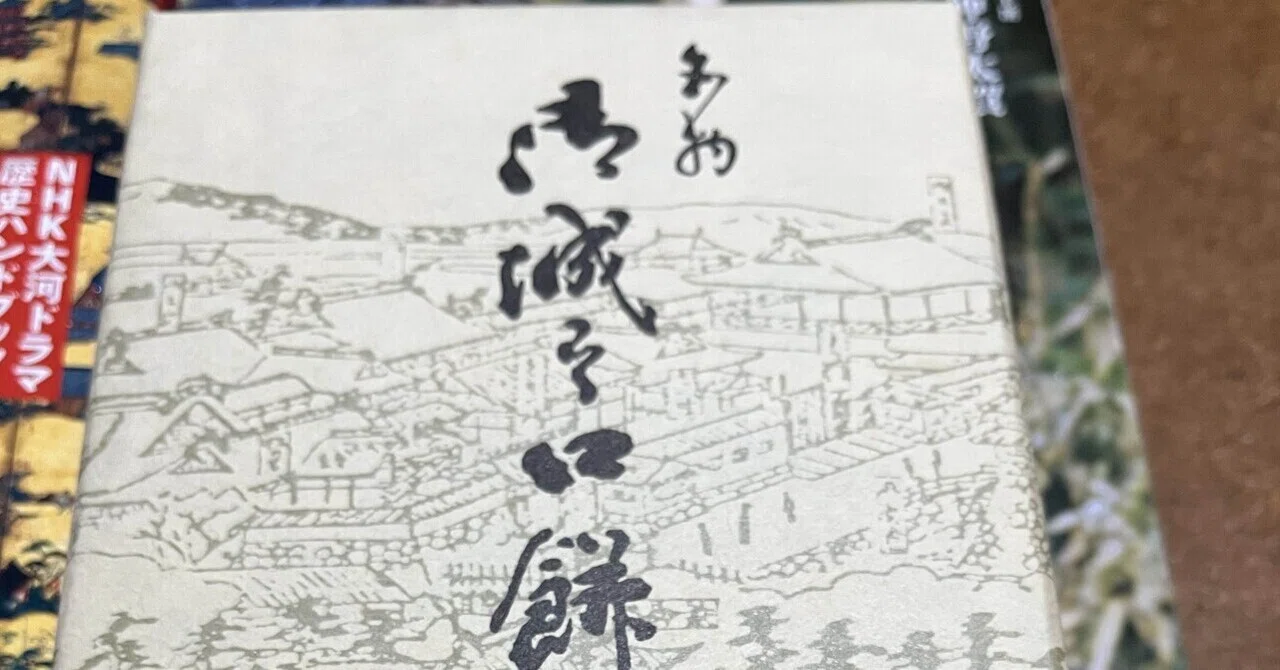 名物
御城之口餅
NHK大河ドラマ
歴史ハンドブック